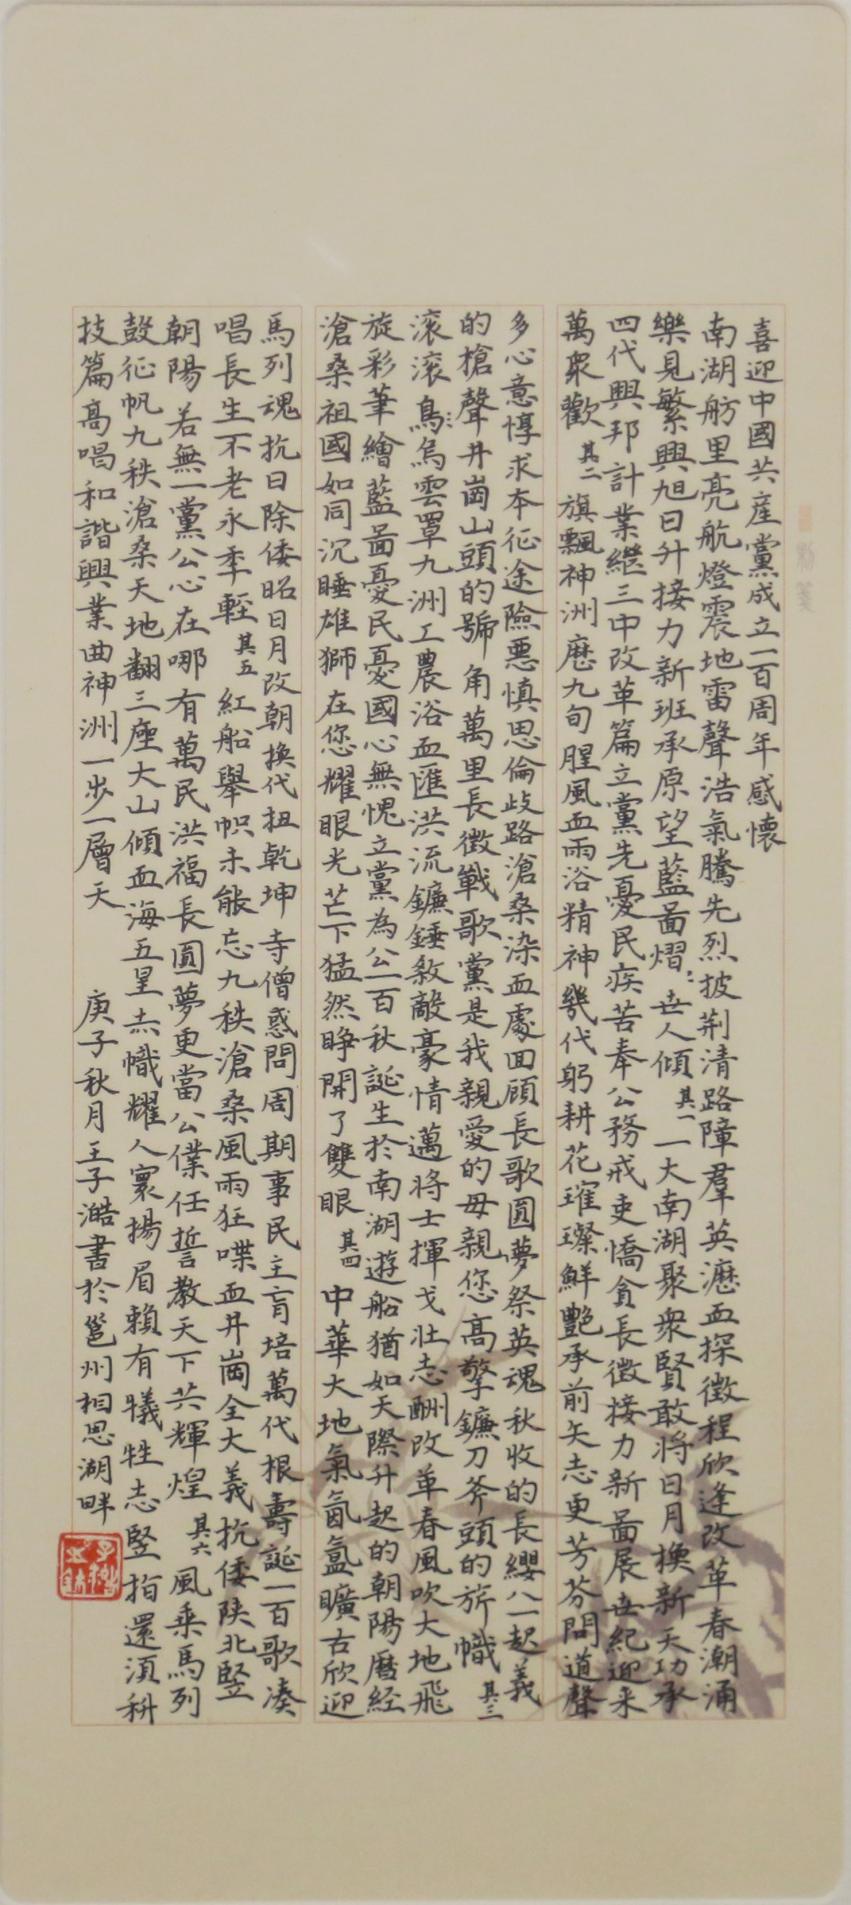 喜迎中國共産黨成立一百周年感懷
南湖舫里亮航燈震地雷聲浩氣騰先烈披荆清路障羣英瀝血探徵程欣逢改革春潮涌
樂見繁興旭日升接力新班承原望藍啚熠:世人傾其一一大南湖聚衆賢敢將日月換新天功承
四代興邦計業繼三中改革篇立黨先憂民疾苦奉公務戒吏憍貪長徵接力新啚展世紀迎来
萬衆歡其二旗飄神洲歷九旬腥風血雨浴精神幾代躬耕花璀璨鮮艷承前矢志更芳芬問道聲
多心意惇求本征途險惡慎思倫歧路滄桑染血處回顧長歌圓夢祭英魂秋收的長纓八一起義
的槍聲井崗山頭的號角萬里長徵戰歌黨是我親愛的母親您高擎鐮刀斧頭的旂幟其三
滚滚烏烏雲罩九洲工農浴血匯洪流鐮錘敘敵豪情邁將士揮戈壯志酬改革春風吹大地飛
旋彩筆繪藍啚憂民憂國心無愧立黨為公一百秋誕生於南湖遊船猶如天際升起的朝陽曆経
滄桑祖國如同沉睡雄獅在您耀眼光芒下猛然睁開了雙眼其四中華大地氣氤氳曠古欣迎
馬列魂抗日除倭昭日月改朝換代扭乾坤寺僧惑問周期事民主育培萬代根壽誕一百歌凑
唱長生不老永季輕其五紅船舉帜未能忘九秩滄桑風雨狂喋血井崗全大義抗倭陕北竪
朝陽若無一黨公心在哪有萬民洪福長圓夢更當公僕任誓教天下共輝煌其六風乘馬列
鼓征帆九秩滄桑天地翻三座大山傾血海五星赤幟耀人寰揚眉賴有犧牲志竪指還須科
技篇高唱和諧興業曲神洲一步一層天　庚子秋月王子澔書於邕州相思湖畔